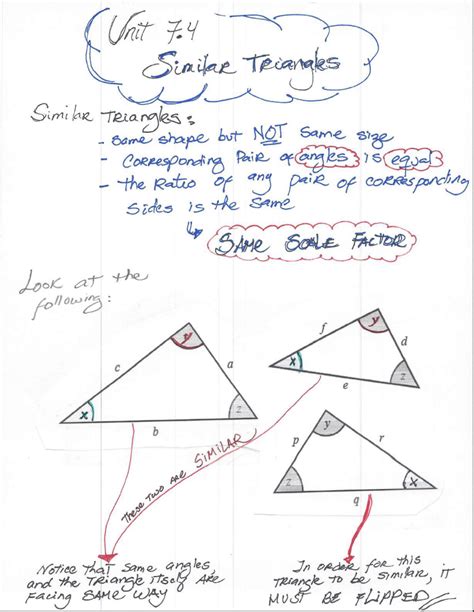 Unit 7.4
Similar Triangles
Similar Triangles:
- Same shape but NOT same size
- Corresponding Pair of angles is equal
- the Ratio of any pair of corresponding
sides is the same
↳ SAME SCALE FACTOR
Look at the
following:
y
c
a
x
z
b
f
y
d
x
z
e
y
p
r
z
x
q
These two are SIMILAR
Notice that same angles,
and the triangle itself are
Facing SAME WAY
In order for this
triangle to be similar, it
MUST BE FLIPPED